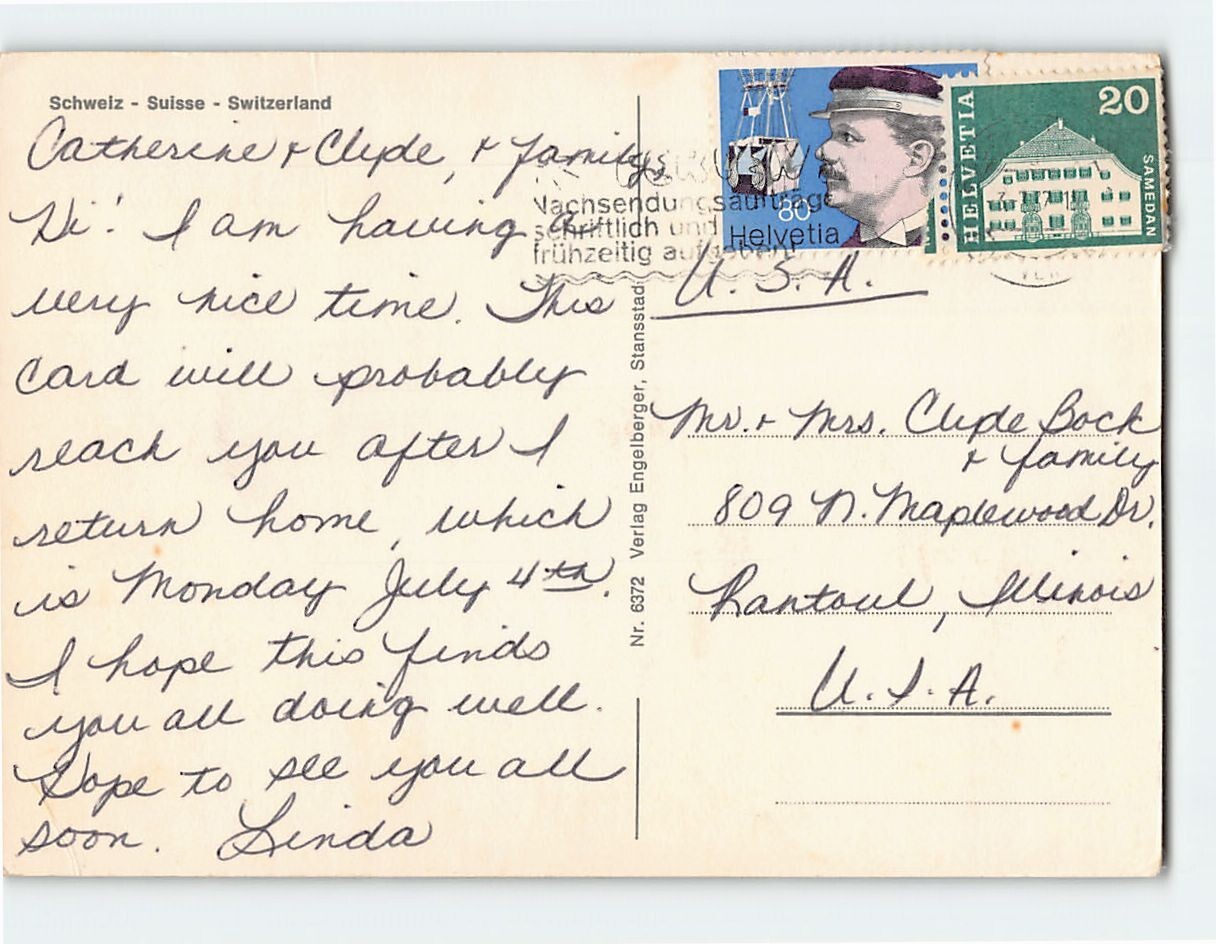 Schweiz - Suisse - Switzerland
Catherine + Clyde, + family,
Hi! I am having a
very nice time. This
card will probably
reach you after I
return home, which
is Monday July 4th.
I hope this finds
you all doing well.
Hope to see you all
soon. Linda
Nr. 6372 Verlag Engelberger, Stansstad
Nachsendungsaufträge
schriftlich und
frühzeitig aufgeben!
80
Helvetia
HELVETIA
20
SAMEDAN
U.S.A.
Mr. + Mrs. Clyde Bock
+ family
809 N. Maplewood Dr.
Rantoul, Illinois
U.S.A.